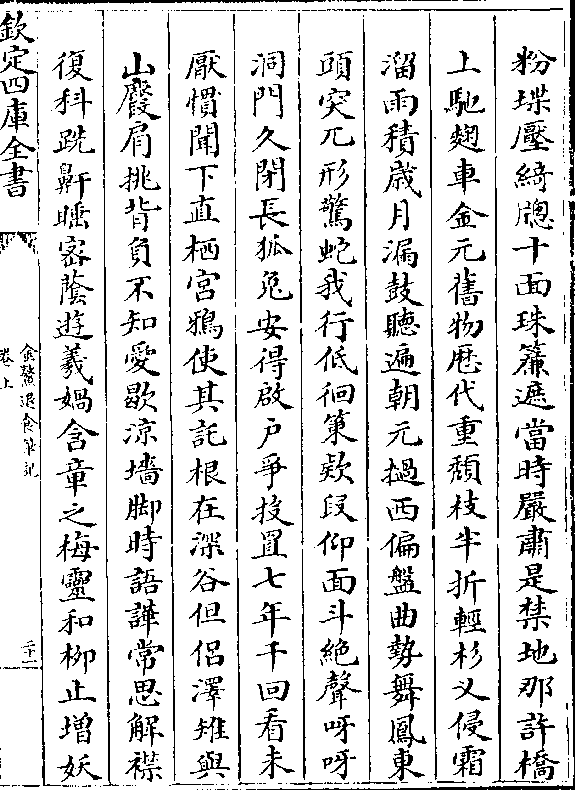 粉堞壓綺牕十面珠簾遮當時嚴肅是禁地那許橋
上馳麹車金元舊物歴代重頽枝半折輕杉乂侵霜
溜雨積歲月漏鼓聽遍朝元撾西偏盤曲勢舞鳳東
頭突兀形驚蛇我行低徊策欵段仰面斗絶聲呀呀
洞門久閉長狐兔安得啟戸爭投罝七年千回看未
厭慣聞下直栖宮鴉使其託根在深谷但侣澤雉與
山麚肩挑背負不知愛歇凉墻脚時語譁常思解襟
復科跣鼾睡密蔭遊羲媧含章之梅靈和柳止增妖
欽定四庫全書
金鼇退食筆記
卷上
二十一